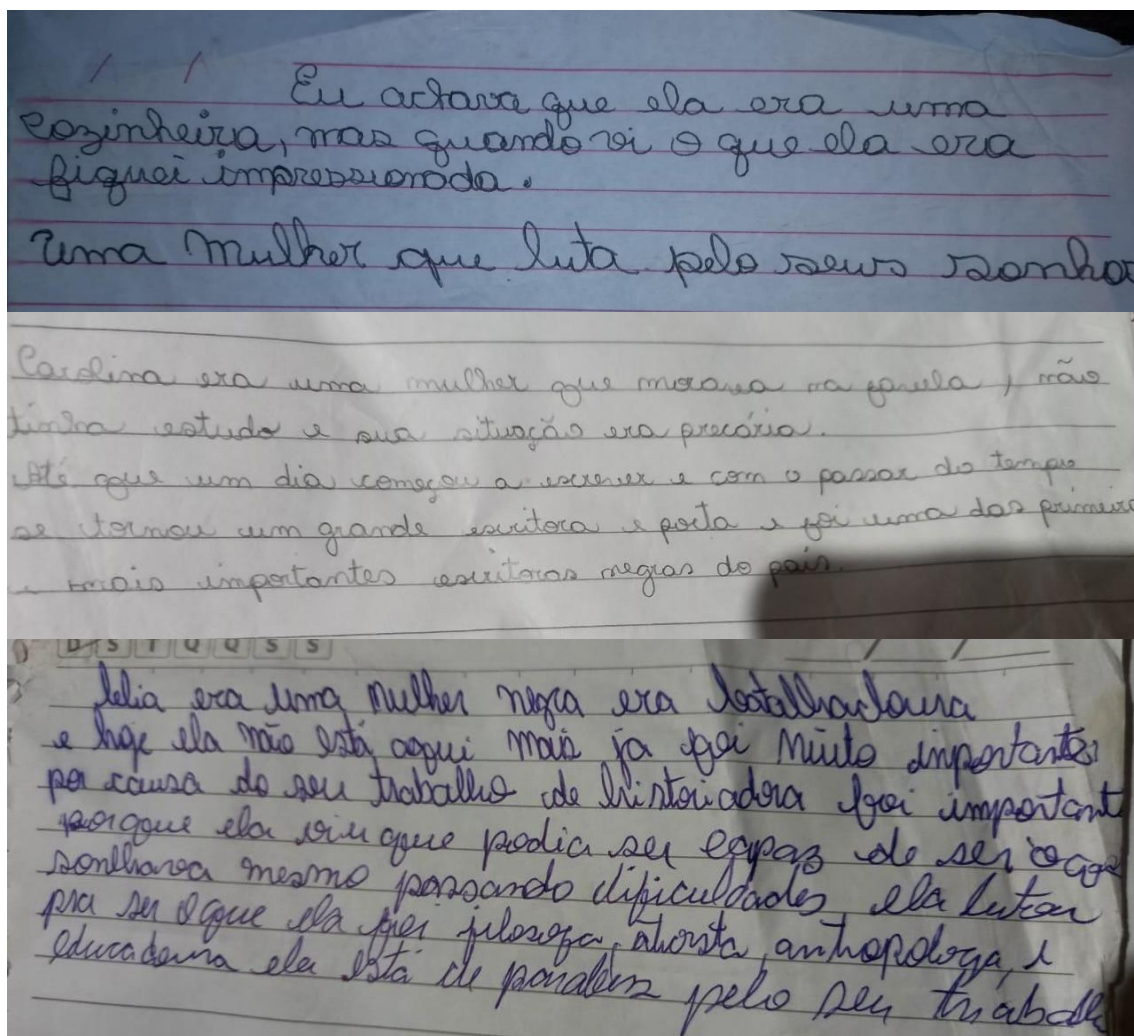 Eu achava que ela era uma
cozinheira, mas quando vi o que ela era
fiquei impressionada.
Uma Mulher que luta pelo seus sonhos
Carolina era uma mulher que morava na favela, não
tinha estudo e sua situação era precária.
Até que um dia começou a escrever e com o passar do tempo
se tornou um grande escritora e poeta e foi uma das primeira
e mais importantes escritoras negras do país.
D S T Q Q S S
lelia era uma mulher negra era batalhadoura
e hoje ela não está aqui mais ja foi muito importantes
por causa do seu trabalho de historiadora foi important
porque ela viu que podia ser capaz de ser o que
sonhava mesmo passando dificuldades ela lutou
pra ser o que ela foi filosofa, antropologa, e
educadoura ela está de parabens pelo seu trabalh